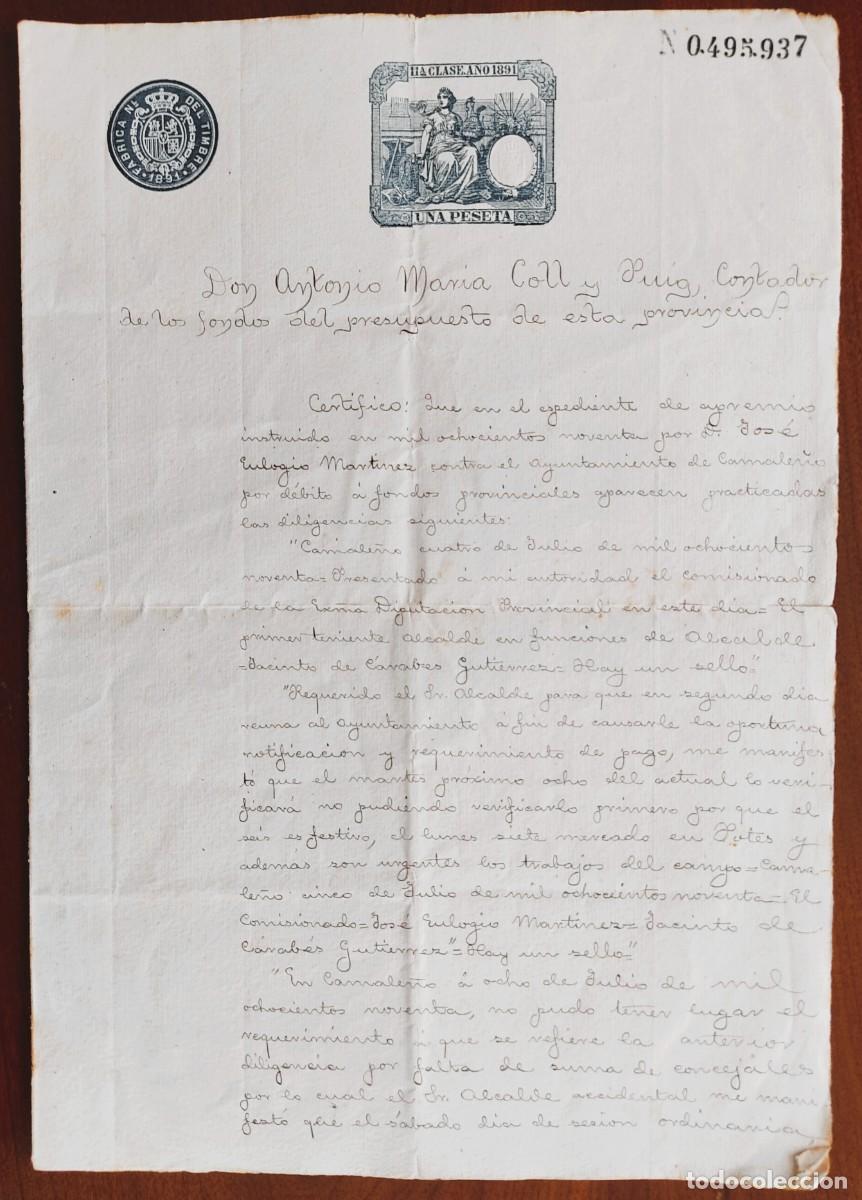 N 0.495.937
11ª CLASE. AÑO 1891
FABRICA NL. DEL TIMBRE
1891
UNA PESETA
Don Antonio Maria Coll y Puig, Contador
de los fondos del presupuesto de esta provincia.
Certifico: Que en el espediente de apremio
instruido en mil ochocientos noventa por D. José
Eulogio Martinez contra el Ayuntamiento de Camaleño
por débito á fondos provinciales aparecen practicadas
las diligencias siguientes:
"Camaleño cuatro de Julio de mil ochocientos
noventa=Presentado á mi autoridad el comisionado
de la Exma Diputacion Provincial en este dia= El
primer teniente Alcalde en funciones de Alcalde
=Jacinto de Cárabes Gutierrez=Hay un sello"
"Requerido el Sr. Alcalde para que en segundo dia
reuna al Ayuntamiento á fin de causarle la oportuna
notificacion y requerimiento de pago, me manifes
tó que el martes próximo ocho del actual lo veri-
ficará no pudiendo verificarlo primero por que el
seis es festivo, el lunes siete mercado en Potes y
además son urgentes los trabajos del campo=Cama-
leño cinco de Julio de mil ochocientos noventa=El
Comisionado=José Eulogio Martinez=Jacinto de
Cárabés Gutierrez"=Hay un sello"
"En Camaleño á ocho de Julio de mil
ochocientos noventa, no pudo tener lugar el
requerimiento á que se refiere la anterior
diligencia por falta de suma de concejáles
por lo cual el Sr. Alcalde accidental me mani
festó que el sábado dia de sesion ordinaria,
todocoleccion